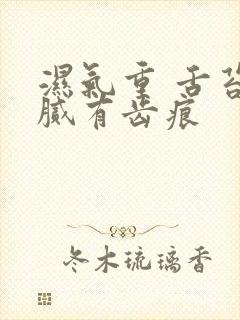 濕氣重 舌苔
膩有齒痕
冬木琉璃香